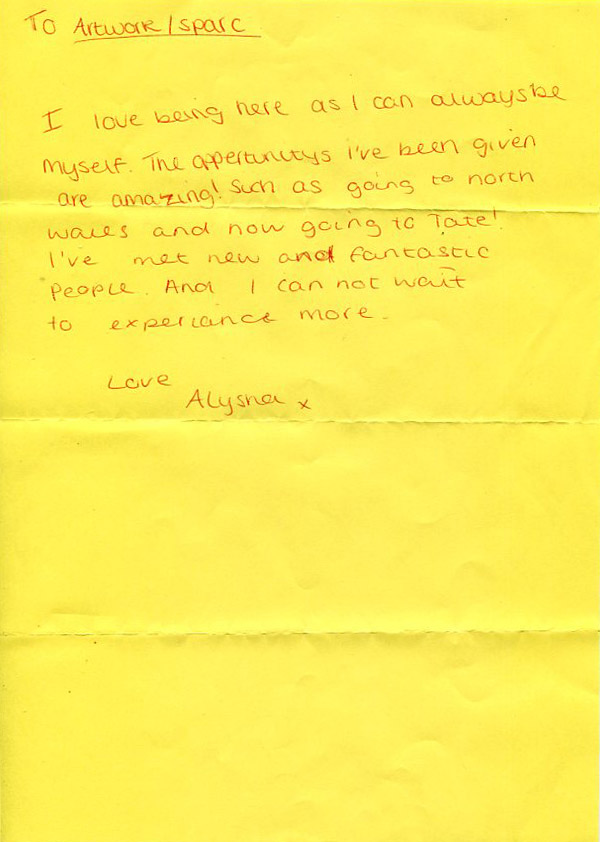 To Artwork/sparc
I love being here as I can always be
myself. The appertunitys I've been given
are amazing! Such as going to north
wales and now going to Tate!
I've met new and fantastic
people. And I can not wait
to experiance more.
Love
Alysha x